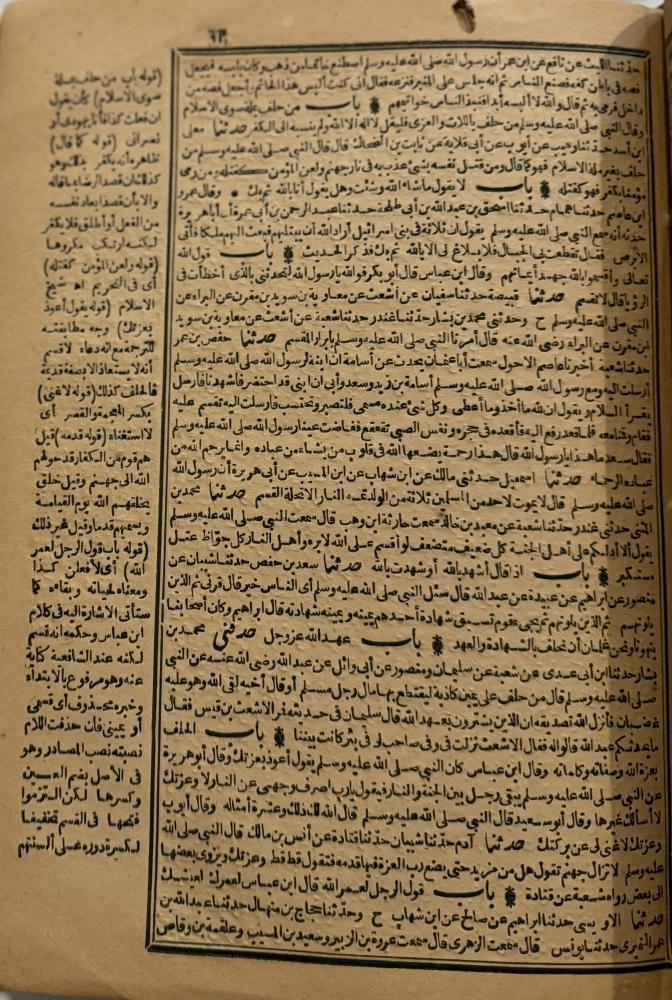 حدثنا الليث عن نافع عن ابن عمر أن رسول الله صلى الله عليه وسلم اصطنع خاتما من ذهب وكان يلبسه فيجعل
فصه في باطن كفه فصنع الناس ثم انه جلس على المنبر فنزعه فقال انى كنت ألبس هذا الخاتم وأجعل فصه من
داخل فرمى به ثم قال والله لا ألبسه أبدا فنبذ الناس خواتيمهم باب من حلف بملة سوى الاسلام
وقال النبي صلى الله عليه وسلم من حلف باللات والعزى فليقل لا اله الا الله ولم ينسبه الى الكفر حدثنا معلى
ابن أسد حدثنا وهيب عن أيوب عن أبى قلابة عن ثابت بن الضحاك قال قال النبي صلى الله عليه وسلم من
حلف بغير ملة الاسلام فهو كما قال ومن قتل نفسه بشئ عذب به في نار جهنم ولعن المؤمن كقتله ومن رمى
مؤمنا بكفر فهو كقتله باب لا يقول ما شاء الله وشئت وهل يقول أنا بالله ثم بك وقال عمرو
ابن عاصم حدثنا همام حدثنا اسحق بن عبد الله بن أبى طلحة حدثنا عبد الرحمن بن أبى عمرة أن أبا هريرة
حدثه أنه سمع النبي صلى الله عليه وسلم يقول ان ثلاثة في بنى اسرائيل أراد الله أن يبتليهم فبعث اليهم ملكا فأتى
الابرص فقال تقطعت بى الحبال فلا بلاغ لى الا بالله ثم بك فذكر الحديث باب قول الله
تعالى وأقسموا بالله جهد أيمانهم وقال ابن عباس قال أبو بكر فوالله يا رسول الله لتحدثنى بالذى أخطأت في
الرؤيا قال لا تقسم حدثنا قبيصة حدثنا سفيان عن أشعث عن معاوية بن سويد بن مقرن عن البراء عن
النبي صلى الله عليه وسلم ح وحدثنى محمد بن بشار حدثنا غندر حدثنا شعبة عن أشعث عن معاوية بن سويد
ابن مقرن عن البراء رضى الله عنه قال أمرنا النبي صلى الله عليه وسلم بابرار المقسم حدثنا حفص بن عمر
حدثنا شعبة أخبرنا عاصم الاحول سمعت أبا عثمان يحدث عن أسامة أن ابنة لرسول الله صلى الله عليه وسلم
أرسلت اليه ومع رسول الله صلى الله عليه وسلم أسامة بن زيد وسعد وأبى أن ابنى قد احتضر فاشهدنا فأرسل
يقرأ السلام ويقول ان لله ما أخذ وما أعطى وكل شئ عنده مسمى فلتصبر وتحتسب فأرسلت اليه تقسم عليه
فقام وقمنا معه فلما قعد رفع اليه فأقعده في حجره ونفس الصبى تقعقع ففاضت عينا رسول الله صلى الله عليه وسلم
فقال سعد ما هذا يا رسول الله قال هذا رحمة يضعها الله في قلوب من يشاء من عباده وانما يرحم الله من
عباده الرحماء حدثنا اسمعيل حدثنى مالك عن ابن شهاب عن ابن المسيب عن أبى هريرة أن رسول الله
صلى الله عليه وسلم قال لا يموت لاحد من المسلمين ثلاثة من الولد تمسه النار الا تحلة القسم حدثنا محمد بن
المثنى حدثنى غندر حدثنا شعبة عن معبد بن خالد سمعت حارثة ابن وهب قال سمعت النبي صلى الله عليه وسلم
يقول ألا أدلكم على أهل الجنة كل ضعيف متضعف لو أقسم على الله لابره وأهل النار كل جواظ عتل
مستكبر باب اذا قال أشهد بالله أو شهدت بالله حدثنا سعد بن حفص حدثنا شيبان عن
منصور عن ابراهيم عن عبيدة عن عبد الله قال سئل النبي صلى الله عليه وسلم أى الناس خير قال قرنى ثم الذين
يلونهم ثم الذين يلونهم ثم يجئ قوم تسبق شهادة أحدهم يمينه ويمينه شهادته قال ابراهيم وكان أصحابنا
ينهونا ونحن غلمان أن نحلف بالشهادة والعهد باب عهد الله عز وجل حدثنى محمد بن
بشار حدثنا ابن أبى عدى عن شعبة عن سليمان ومنصور عن أبى وائل عن عبد الله رضى الله عنه عن النبي
صلى الله عليه وسلم قال من حلف على يمين كاذبة ليقتطع بها مال رجل مسلم أو قال أخيه لقى الله وهو عليه
غضبان فأنزل الله تصديقه ان الذين يشترون بعهد الله قال سليمان في حديثه فمر الاشعث بن قيس فقال
ما يحدثكم عبد الله قالوا له فقال الاشعث نزلت فى وفى صاحب لى في بئر كانت بيننا باب الحلف
بعزة الله وصفاته وكلماته وقال ابن عباس كان النبي صلى الله عليه وسلم يقول أعوذ بعزتك وقال أبو هريرة
عن النبي صلى الله عليه وسلم يبقى رجل بين الجنة والنار فيقول يا رب اصرف وجهى عن النار لا وعزتك
لا أسألك غيرها وقال أبو سعيد قال النبي صلى الله عليه وسلم قال الله لك ذلك وعشرة أمثاله وقال أيوب
وعزتك لا غنى لى عن بركتك حدثنا آدم حدثنا شيبان حدثنا قتادة عن أنس بن مالك قال النبي صلى الله
عليه وسلم لا تزال جهنم تقول هل من مزيد حتى يضع رب العزة فيها قدمه فتقول قط قط وعزتك ويزوى بعضها
الى بعض رواه شعبة عن قتادة باب قول الرجل لعمر الله قال ابن عباس لعمرك لعيشك
حدثنا الاويسى حدثنا ابراهيم عن صالح عن ابن شهاب ح وحدثنا حجاج بن منهال حدثنا عبد الله بن
عمر النميرى حدثنا يونس قال سمعت الزهرى قال سمعت عروة بن الزبير وسعيد بن المسيب وعلقمة بن وقاص
(قوله باب من حلف بملة
سوى الاسلام) كأن يقول
ان فعلت كذا فأنا يهودى أو
نصرانى (قوله كما قال)
ظاهره أنه يكفر بذلك وهو
كذلك ان قصد الرضا بما قاله
والا بأن قصد ابعاد نفسه
من الفعل أو أطلق فلا يكفر
لكنه ارتكب مكروها
(قوله ولعن المؤمن كقتله)
أى في التحريم اه شيخ
الاسلام (قوله يقول أعوذ
بعزتك) وجه مطابقته
للترجمة مع أنه دعاء لا قسم
أنه لا يستعاذ الا بصفة قديمة
فالحلف كذلك (قوله لا غنى)
بكسر المعجمة والقصر أى
لا استغناء (قوله قدمه) قيل
هم قوم من الكفار قدمهم
الله الى جهنم وقيل خلق
يخلقهم الله يوم القيامة
ويسميهم قدما وقيل غير ذلك
(قوله باب قول الرجل لعمر
الله) أى لأفعلن كذا
ومعناه لحياته وبقاءه كما
ستأتى الاشارة اليه في كلام
ابن عباس وحكمه انه قسم
لكنه عند الشافعية كناية
عنه وهو مرفوع بالابتداء
وخبره محذوف أى قسمى
أو يمينى فان حذفت اللام
نصبته نصب المصادر وهو
فى الأصل بضم العين
وكسرها لكن التزموا
فتحها في القسم تخفيفا
لكثرة دوره على ألسنتهم